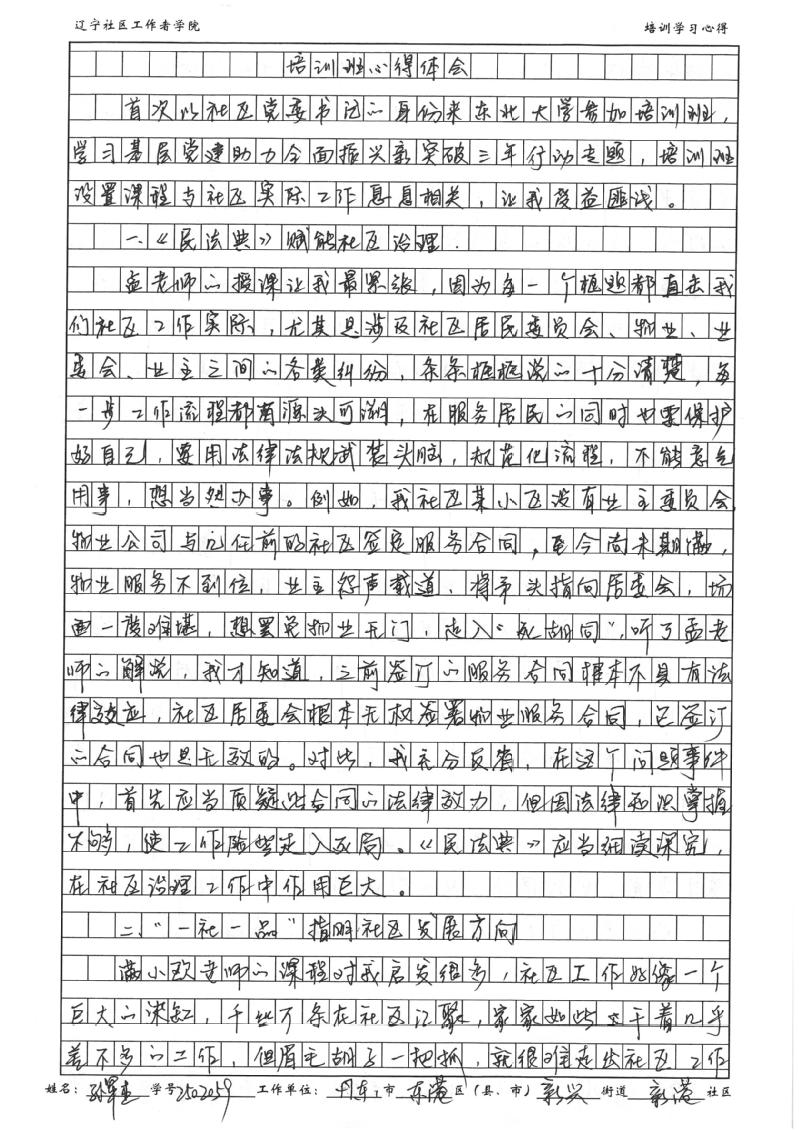 辽宁社区工作者学院 培训学习心得
培训班心得体会
首次以社区党委书记的身份来东北大学参加培训班,
学习基层党建助力全面振兴新突破三年行动专题,培训班
设置课程与社区实际工作息息相关,让我受益匪浅。
一、《民法典》赋能社区治理.
孟老师的授课让我最紧张,因为每一个框题都直击我
们社区工作实际,尤其是涉及社区居民委员会、物业、业
委会、业主之间的各类纠纷,条条框框说的十分清楚,每
一步工作流程都有源头可溯,在服务居民的同时也要保护
好自己,要用法律法规武装头脑,规范化流程,不能意气
用事,想当然办事。例如,我社区某小区没有业主委员会,
物业公司与记任前的社区签定服务合同,至今尚未期满,
物业服务不到位,业主怨声载道,将矛头指向居委会,场
面一度难堪,想罢免物业无门,走入“死胡同”,听了孟老
师的解说,我才知道,之前签订的服务合同根本不具有法
律效应,社区居委会根本无权签署物业服务合同,已签订
的合同也是无效的。对此,我充分反省,在这个问题事件
中,首先应当质疑此合同的法律效力,但因法律知识掌握
不够,使工作险些走入死局。《民法典》应当细读深究,
在社区治理工作中作用巨大。
二、“一社一品”指明社区发展方向
满小欧老师的课程对我启发很多,社区工作好像一个
巨大的染缸,千丝万条在社区汇聚,家家如此,干着几乎
差不多的工作,但眉毛胡子一把抓,就很难走出社区工作
姓名: 学号2502059 工作单位:丹东市 东港区(县、市) 新兴街道 新港社区